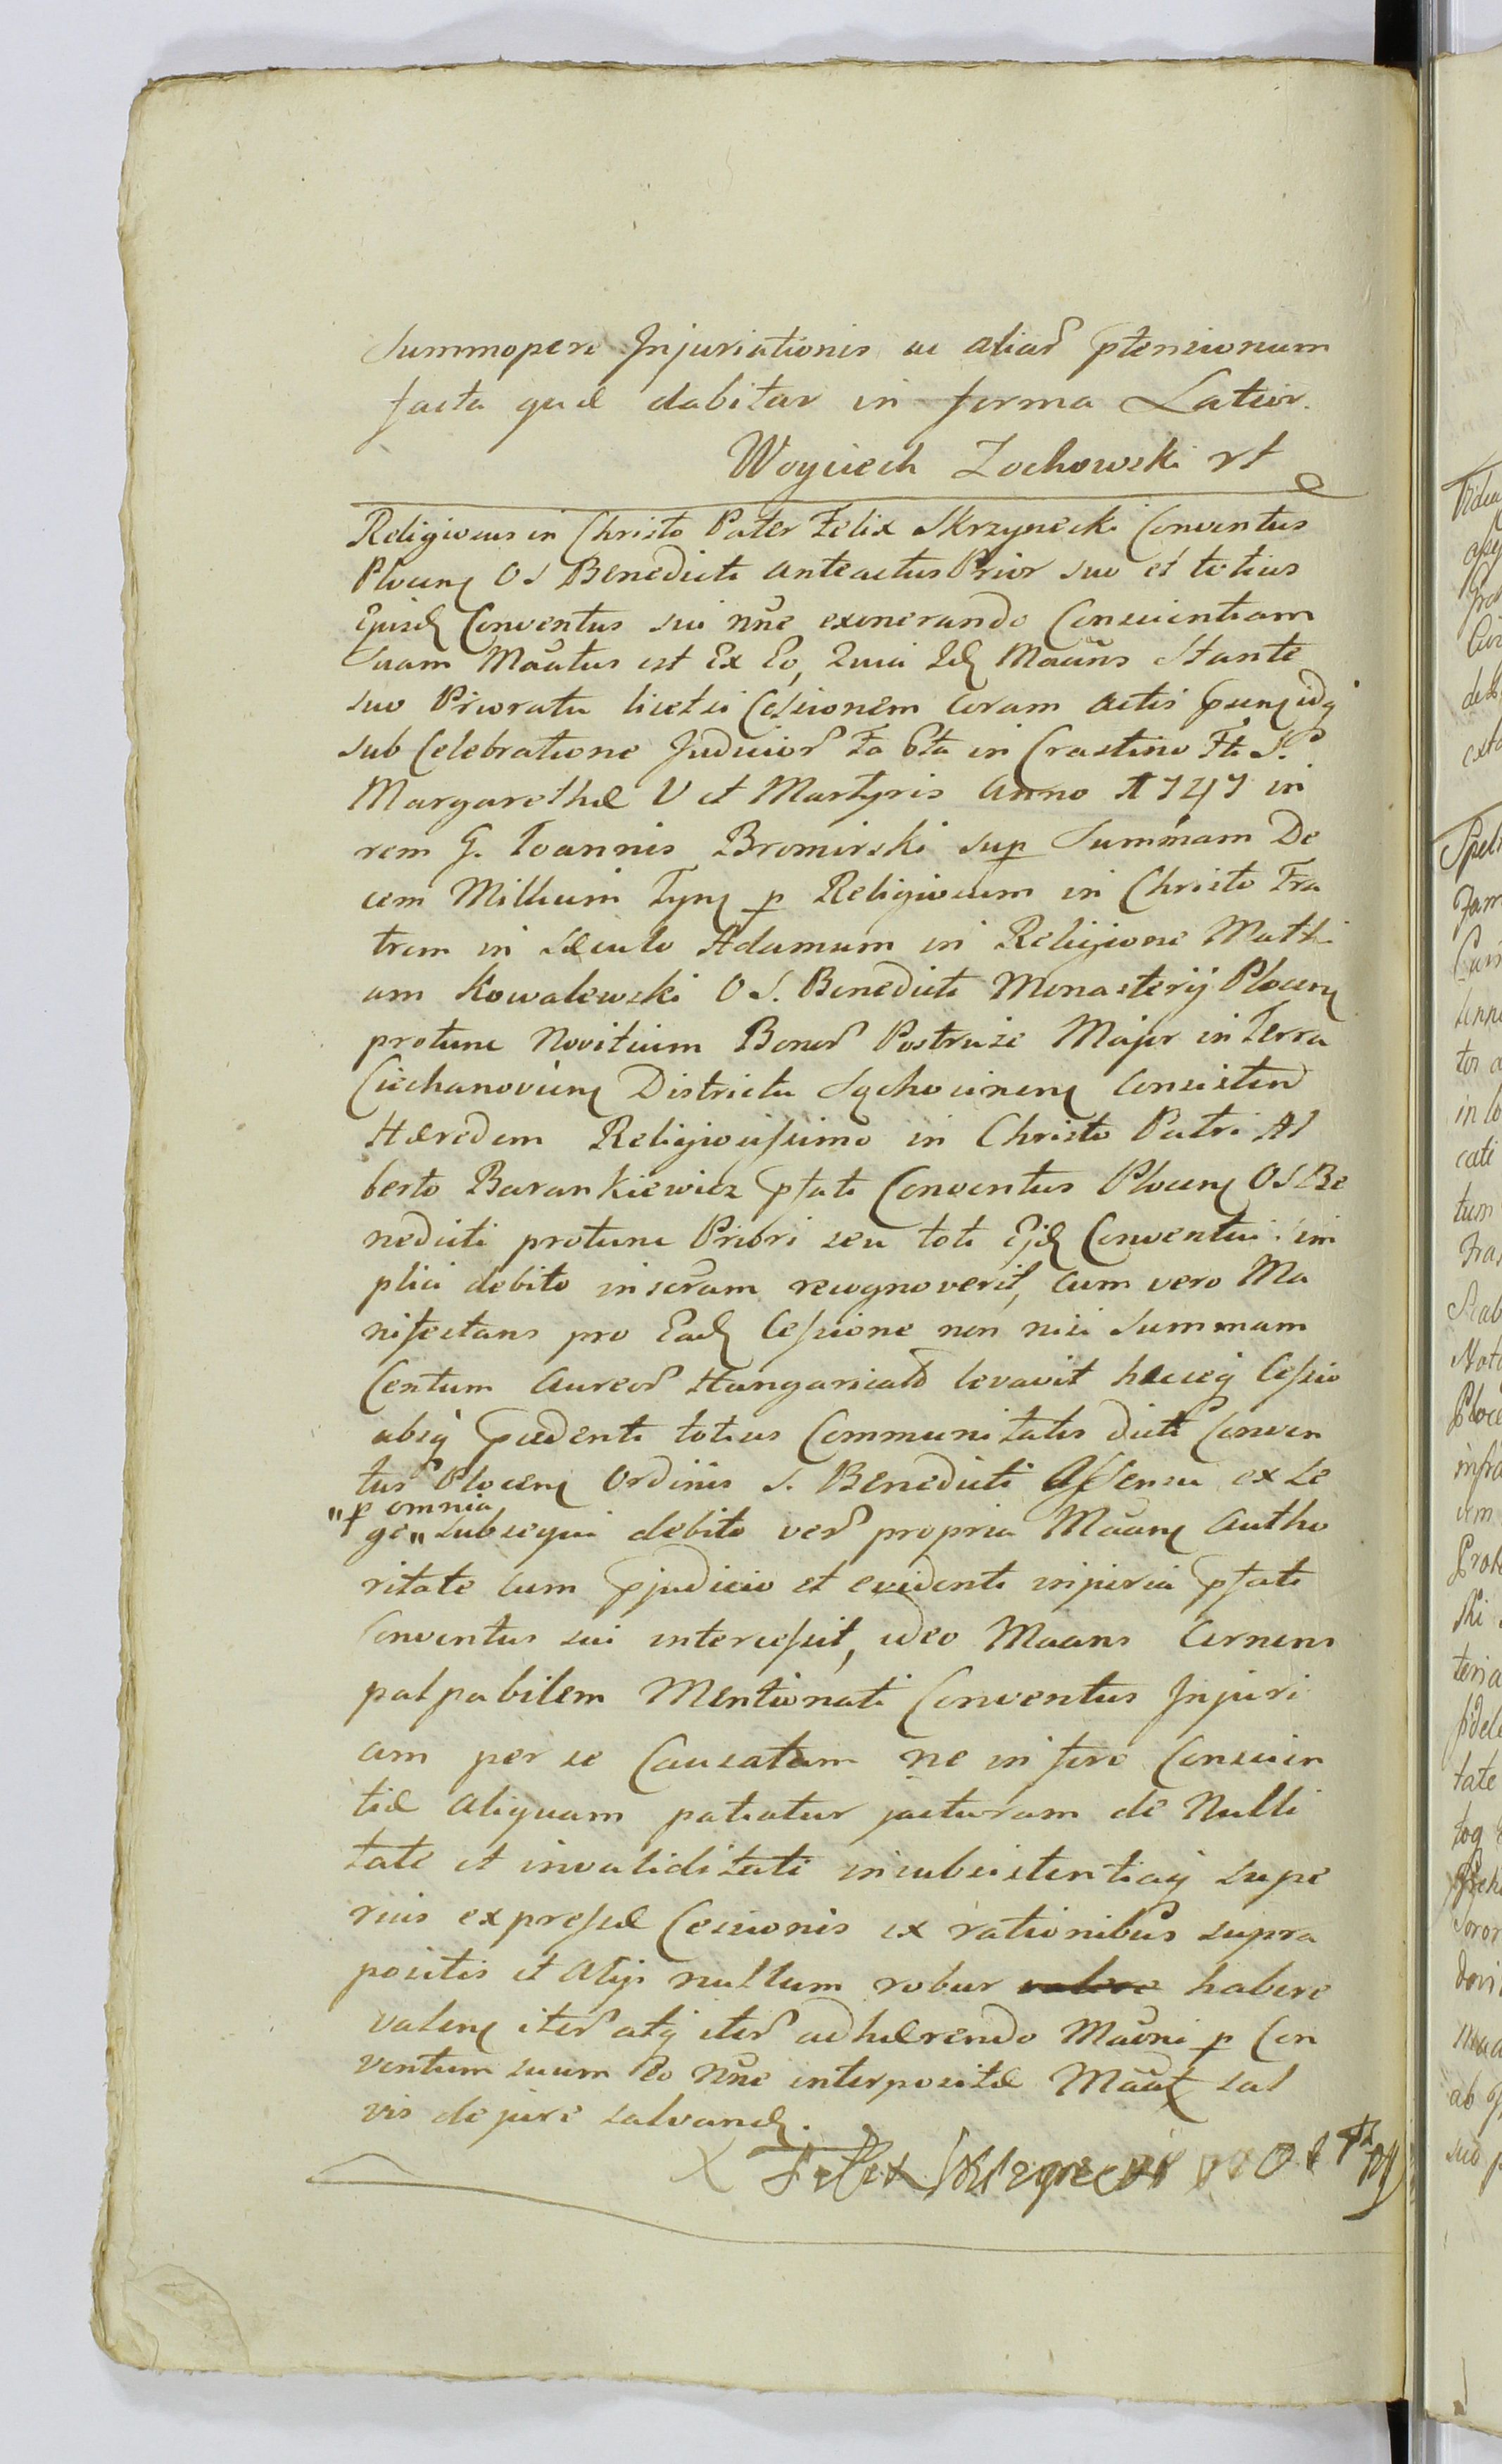 Summopere Injuriationis ac aliar ptensionum
facta quæ dabitur in forma Latior.
Woyciech Zochowski rt
Religiosus in Christo Pater Felix Skrzynecki Conventus
Plocen OS Benedicti anteactus Prior suo et totius
Ejusd Conventus sui nne exonerando Conscientiam
Suam Maatus est Ex Eo, Quia Id Maans Stante
suo Prioratu licet si Cessionem coram actis idq
sub Celebratione Judicior Fa 6ta in Crastino Fti S.
Margarethæ V et Martyris Anno 1747 in
rem G. Joannis Bromirski sup Summam De
cem Millium Tyn p Religiosum in Christo Fra
trem in sæculo Adamum in Religione Mathi
am Kowalewski O S. Benedicti Monasterij Plocen
protunc Novitium Bonor Postruże Major in Terra
Ciechanovien Districtu Sąchocinen Consisten
Hæredem Religiosissimo in Christo Patri Al
berto Barankiewicz pfati Conventus Plocen OS Be
nedicti protunc Priori seu toti Ejd Conventui sim
plici debito inscram recognoverit, cum vero Ma
nifestans pro Ead Cessione non nisi Summam
Centum Aureor Hungarical levavit hæcq Cessio
absq totius Communitatis dicti Conven
tus Plocen Ordinis S. Benedicti Assensu ex Le
"p omnia
ge" subsequi debito ver propria Maan Autho
ritate cum pjudicio et evidenti injuria pfati
Conventus sui intercessit, ideo Maans Cernens
palpabilem Mentionati Conventus Injuri
am per se Causatam ne in foro Conscien
tiæ aliquam patiatur jacturam de Nulli
tate et invaliditate insubsistentiaq supe
rius expressæ Cessionis ex rationibus supra
positis et alijs nullum robur valere habere
valen iter atq iter adhærendo Maoni p Con
ventum suum Eo Nne interpositæ sal
vis de jure salvand.
X Felix